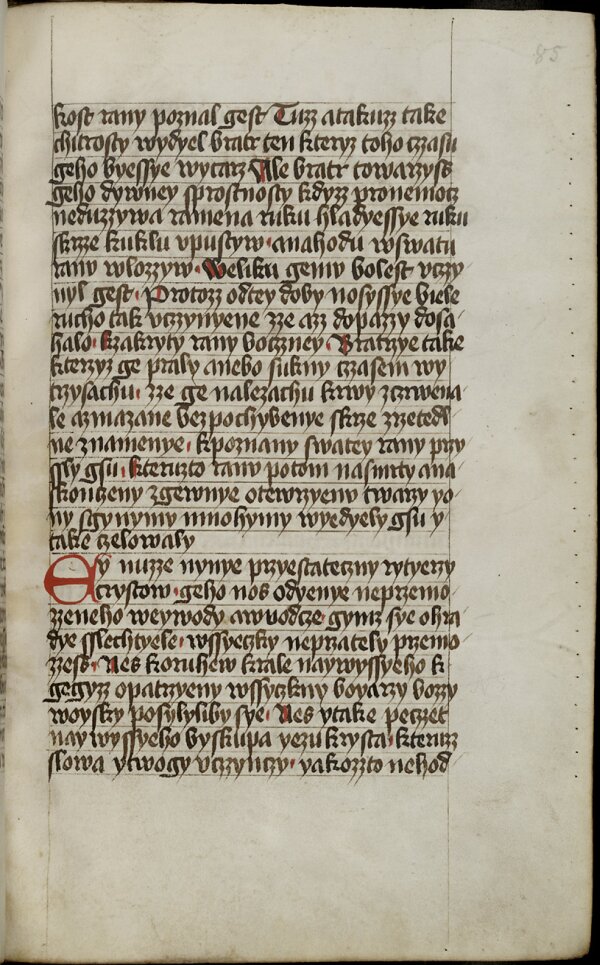 85
kost rany poznal gest Tuzz atakuzz take
chitrosty wydyel bratr ten kteryz toho czasu
geho byessye wytarz Ale bratr towarzyss
geho dywney sprostnosty kdyzz pronemocz
neduzzywa ramena ruku hladyessye ruku
skrze kuklu vpustyw · anahodu wswatu
rany wlozzyw · Weliku gemu bolest vczy
nyl gest · Protozz odtey doby nosyssye biele
rucho tak vczynyene zze azz dopazzy dosa
halo · kzakryty rany boczney · Bratrzye take
kteryz ge praly anebo sukny czasem wy
trzysachu · zze ge nalezachu krwy zczrwena
le azmazane bezpochybenye skrze zrzetedl
ne znamenye · kpoznany swatey rany przy
ssly gsu · kteruzto rany potom nasmrty ana
skonczeny zgewnye otewrzyenu twarzy yo
ny sgynymy mnohymy wyedyely gsu y
take czelowaly
Ey nuzze nynye przyestateczny rytyerzy
crystow · geho nos odyenye neprzemo
zzeneho weywody awuodcze gymz sye ohra
dye sslechtyele · wssyeczky neprzately przemo
zzess · Nes koruhew krale naywyssyeho k
gegyzz opatrzyeny wssyczkny boyarzy bozzy
woysky posylyliby sye · Nes ytake peczzet
naywyssyeho byskupa yezukrysta · kteruzz
slowa ytwogy vczynczy · yakozzto nehod